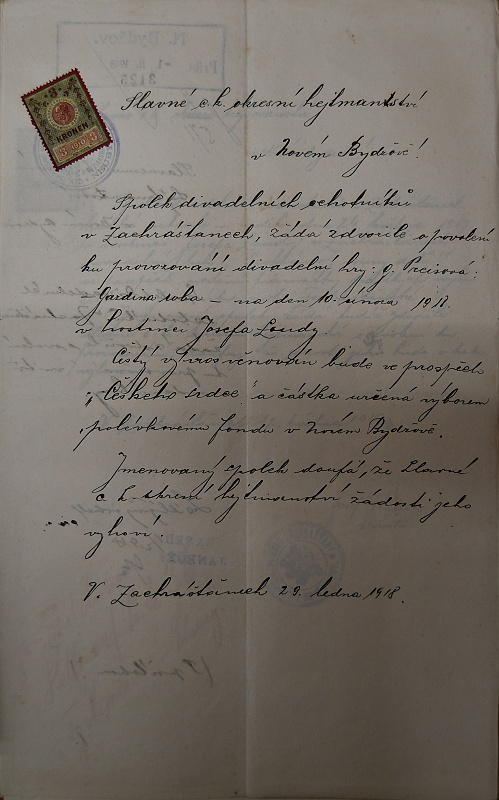 N. Bydžov.
3125
3
KRONEN
3 1910 3
Slavné c.k. okresní hejtmanství
v Novém Bydžově!
Spolek divadelních ochotníků
v Zachrášťanech, žádá zdvořile o povolení
ku provozování divadelní hry: g. Preisová:
Gazdina roba – na den 10. února 1918
v hostinci Josefa Loudy.
Čistý výnos věnován bude ve prospěch
„Českého srdce" a částka určená výborem
polévkovému fondu v Novém Bydžově.
Jmenovaný spolek doufá, že Slavné
c. k. okresní hejtmanství žádosti jeho
vyhoví.
V. Zachrášťanech 29. ledna 1918.